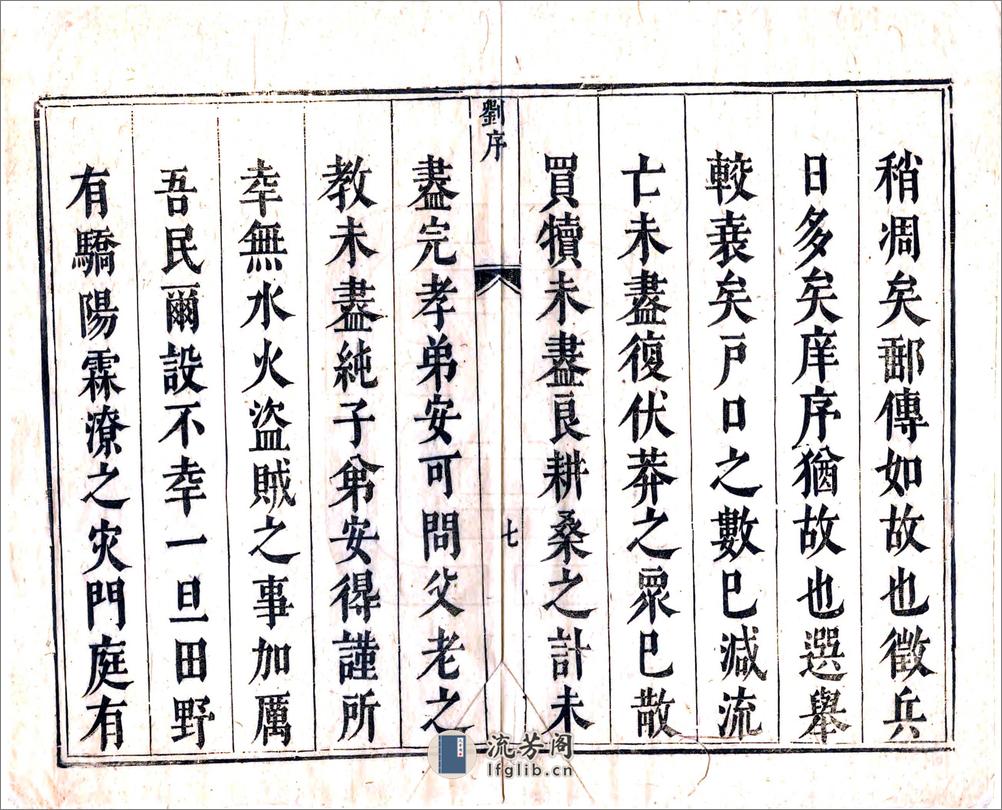 稍凋矣郵傳如故也徵兵
日多矣庠序猶故也選舉
較衰矣戶口之數已減流
亡未盡復伏莽之眾已散
買犢未盡良耕桑之計未
劉序
七
盡完孝弟安可問父老之
教未盡純子弟安得謹所
幸無水火盜賊之事加厲
吾民爾設不幸一旦田野
有驕陽霖潦之灾門庭有
流芳阁
lfglib.cn